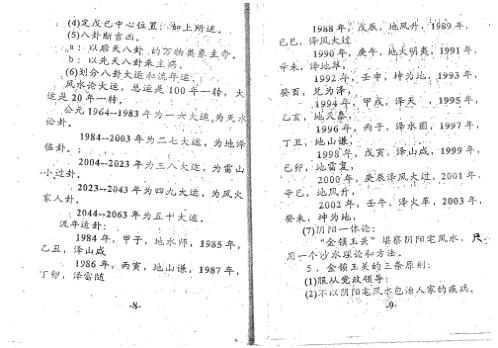 (4)定戊己中心位置：如上所述。
(5)八卦断吉凶。
a：以后天八卦的万物类象主命。
b：以先天八卦来主病。
(6)划分八卦大运和流年运：
风水论大运，总运是100年一转，大
运是20年一转。
公元1964--1983年为一六大运，为天水
讼卦。
1984--2003年为二七大运，为地泽
临卦。
2004--2023年为三八大运，为雷山
小过卦。
2023--2043年为四九大运，为风火
家人卦。
2044--2063年为五十大运。
流年运卦：
1984年，甲子，地水师，1985年，
乙丑，泽山咸
1986年，丙寅，地山谦，1987年，
丁卯，泽雷随
-8-
1988年，戊辰，地风升，1989年，
己巳，泽风大过
1990年，庚午，地火明夷，1991年，
辛未，泽地萃
1992年，壬申，坤为地，1993年，
癸酉，兑为泽，
1994年，甲戌，泽天，1995年，
乙亥，地天泰，
1996年，丙子，泽水困，1997年，
丁丑，地山谦，
1998年，戊寅，泽山咸，1999年，
己卯，地雷复，
2000年，庚辰泽风大过，2001年，
辛巳，地风升，
2002年，壬午，泽火革，2003年，
癸未，坤为地，
(7)阴阳一体论：
“金锁玉关”堪察阴阳宅风水，只
用一个沙水理论和方法。
5、金锁玉关的三条原则：
(1)服从党政领导；
(2)不以阴阳宅风水包治人家的疾病。
-9-